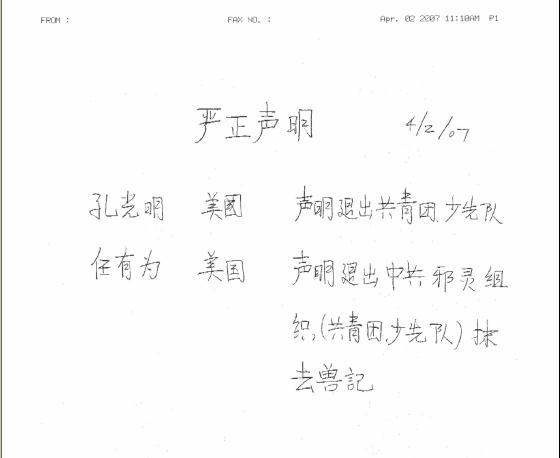 FROM : FAX NO. : Apr. 02 2007 11:10AM P1
严正声明 4/2/07
孔光明 美國 声明退出共青团.少先队
任有为 美国 声明退出中共邪灵组
织,(共青团,少先队) 抹
去兽記